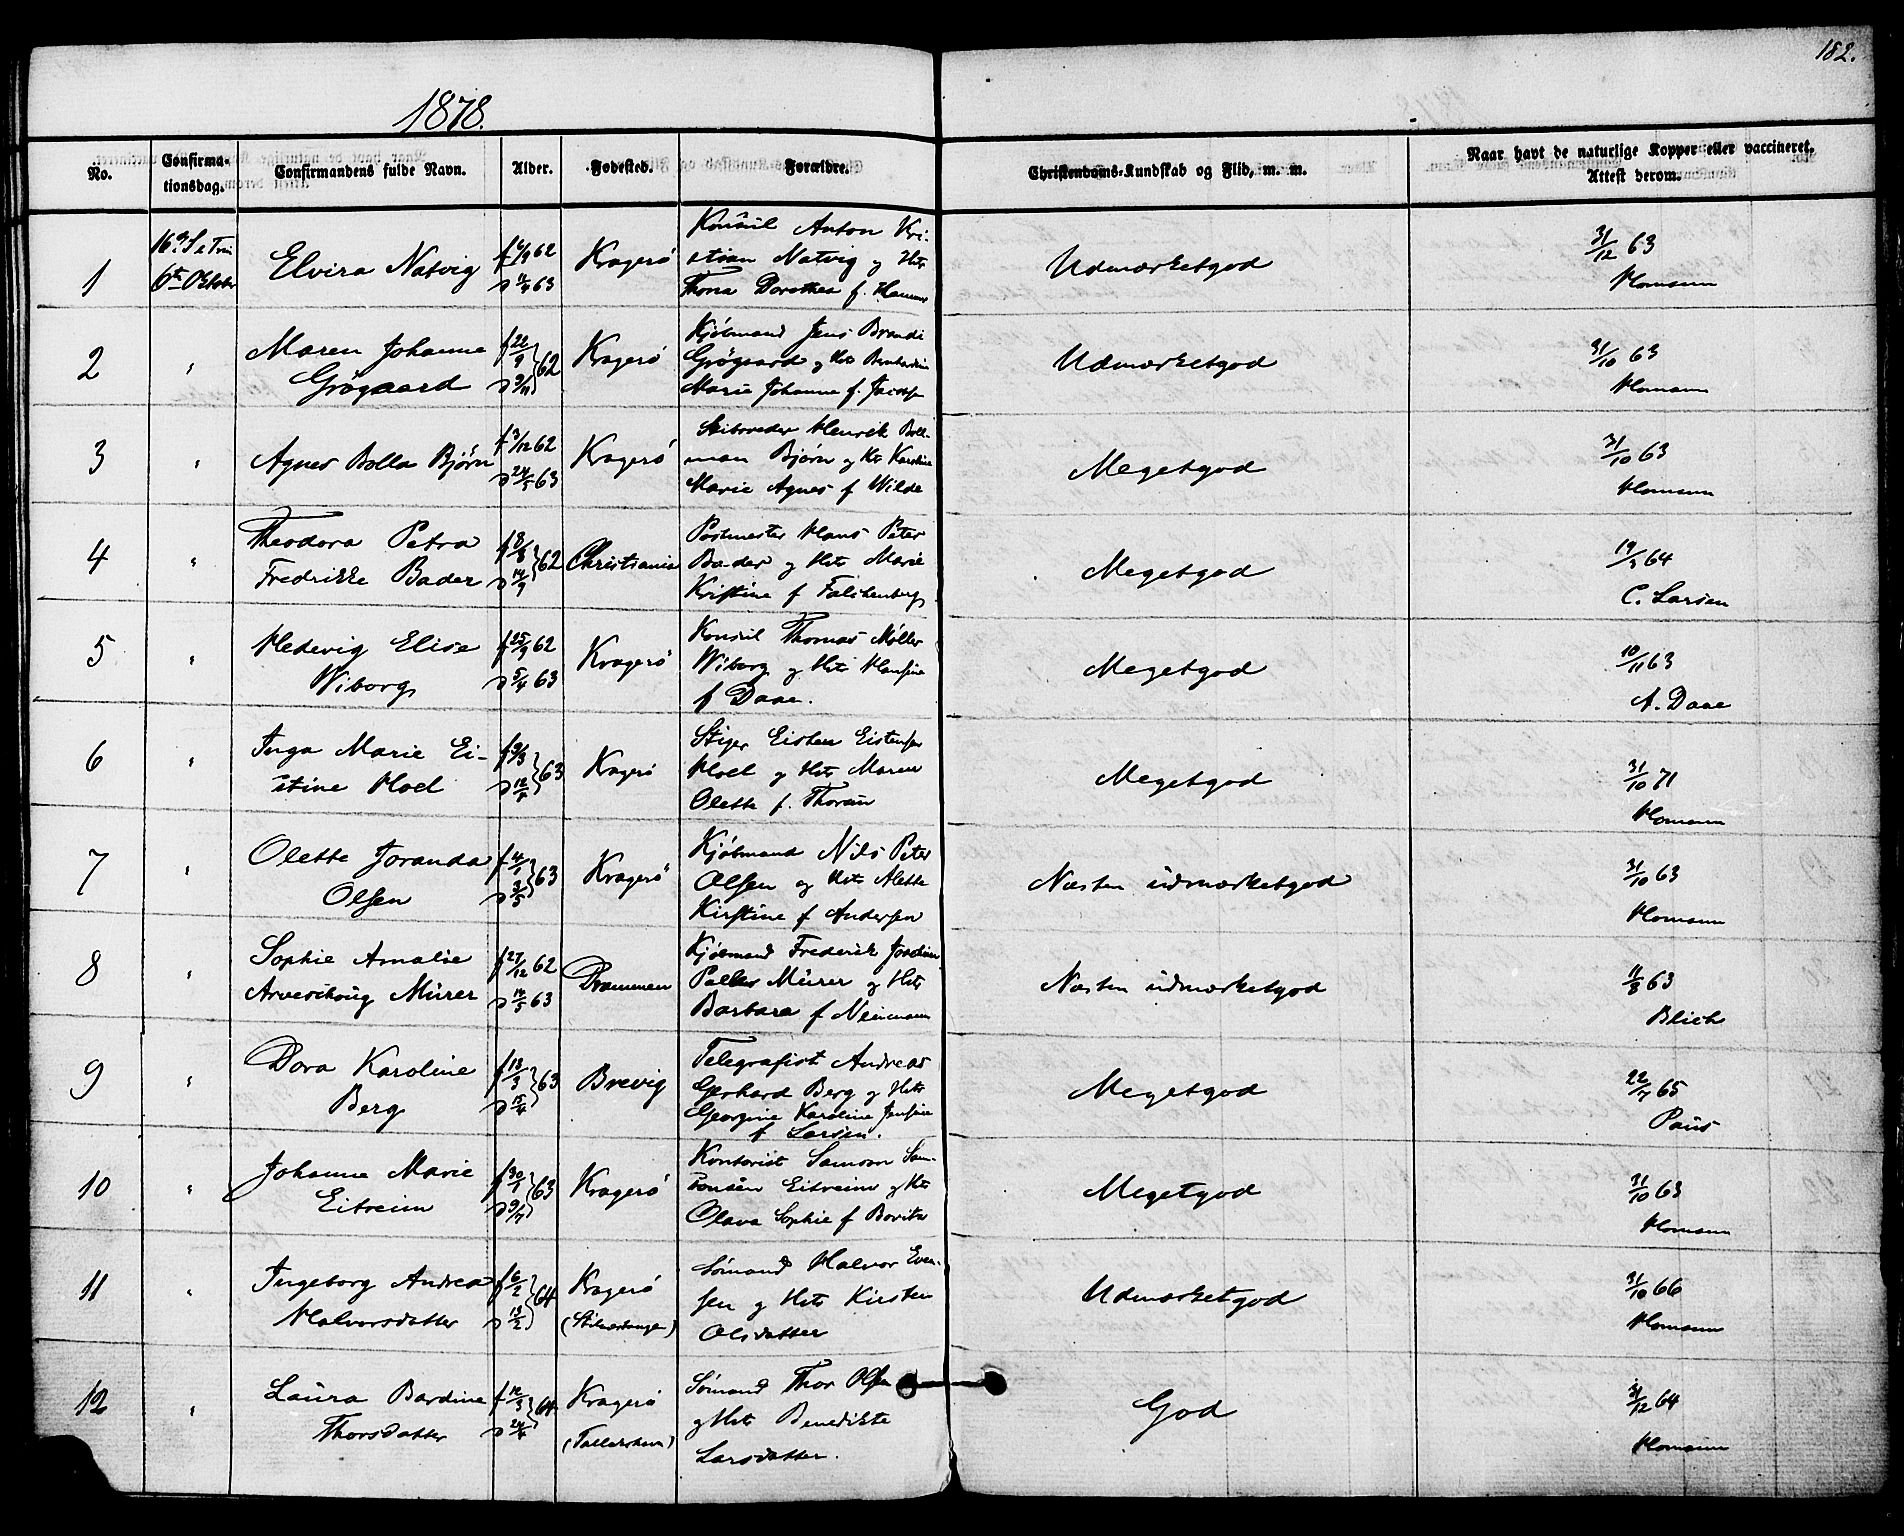 182.
1878.
No.
Confirma-
tionsdag.
Confirmandens fulde Navn.
Alder.
Fødested.
Forældre.
Christendoms-Kundskab og Flid, m. m.
Naar havt de naturlige Kopper eller vaccineret.
Attest derom.
1
16de S. e. Trin
6te Oktober
Elvira Natvig
f 6/9 62
Kragerø
Konsul Anton Kri-
stian Natvig og Hst
Thora Dorothea f.
Udmærketgod
31/12 63
Homann
2
"
Maren Johanne
Grøgaard
f 22/9
D 9/11 } 62
Kragerø
Kjøbmand Jens Brandi
Grøgaard og Hst
Marie Johanne f. Jacobsen
Udmærketgod
31/10 63
Homann
3
"
Agnes Bolla Bjørn
f 3/12 62
D 24/5 63
Kragerø
Skibsreder Henrik Boll-
man Bjørn og Hst Karoline
Marie Agnes f Wilde
Megetgod
31/10 63
Homann
4
"
Theodora Petra
Fredrikke Bader
f 8/8
D 14/9 } 62
Christiania
Postmester Hans Peter
Bader og Hst Marie
Kristine f Falckenberg
Megetgod
19/5 64
C. Larsen
5
"
Hedevig Elise
Wiborg
f 25/9 62
D 5/4 63
Kragerø
Konsul Thomas Møller
Wiborg og Hst Hansine
f Daae.
Megetgod
10/11 63
A. Daae
6
"
Inga Marie Ei-
stine Hoel
f 9/3
D 12/5 } 63
Kragerø
Stiger Eisten Eistensen
Hoel og Hst Maren
Olette f. Thorsen
Megetgod
31/10 71
Homann
7
"
Olette Joranda
Olsen
f 4/1
D 3/5 } 63
Kragerø
Kjøbmand Nils Peter
Olsen og Hst Alette
Kirstine f Andersen
Næsten udmærketgod
31/10 63
Homann
8
"
Sophie Amalie
Arveschoug Mürer
f 27/12 62
D 14/5 63
Drammen
Kjøbmand Frederik Joachim
Mürer og Hst
Barbara f Neumann
Næsten udmærketgod
11/8 63
Blich
9
"
Dora Karoline
Berg
f 13/3
D 15/4 } 63
Brevig
Telegrafist Andreas
Gerhard Berg og Hst
Georgine Karoline Jensine
f Larsen.
Megetgod
22/7 65
Paus
10
"
Johanne Marie
Eitreim
f 30/1
D 9/7 } 63
Kragerø
Kontorist Samson Sam-
sonsen Eitreim og Hst
Olava Sophie f
Megetgod
31/10 63
Homann
11
"
Ingeborg Andrea
Halvorsdatter
f 6/2
D 13/2 } 64
Kragerø
Sømand Halvor Even-
sen og Hst Kirsten
Olsdatter
Udmærketgod
31/10 66
Homann
12
"
Laura Bardine
Thorsdatter
f 12/3
D 24/4 } 64
Kragerø
Sømand Thor Olsen
og Hst Benedikte
Larsdatter.
God
31/12 64
Homann